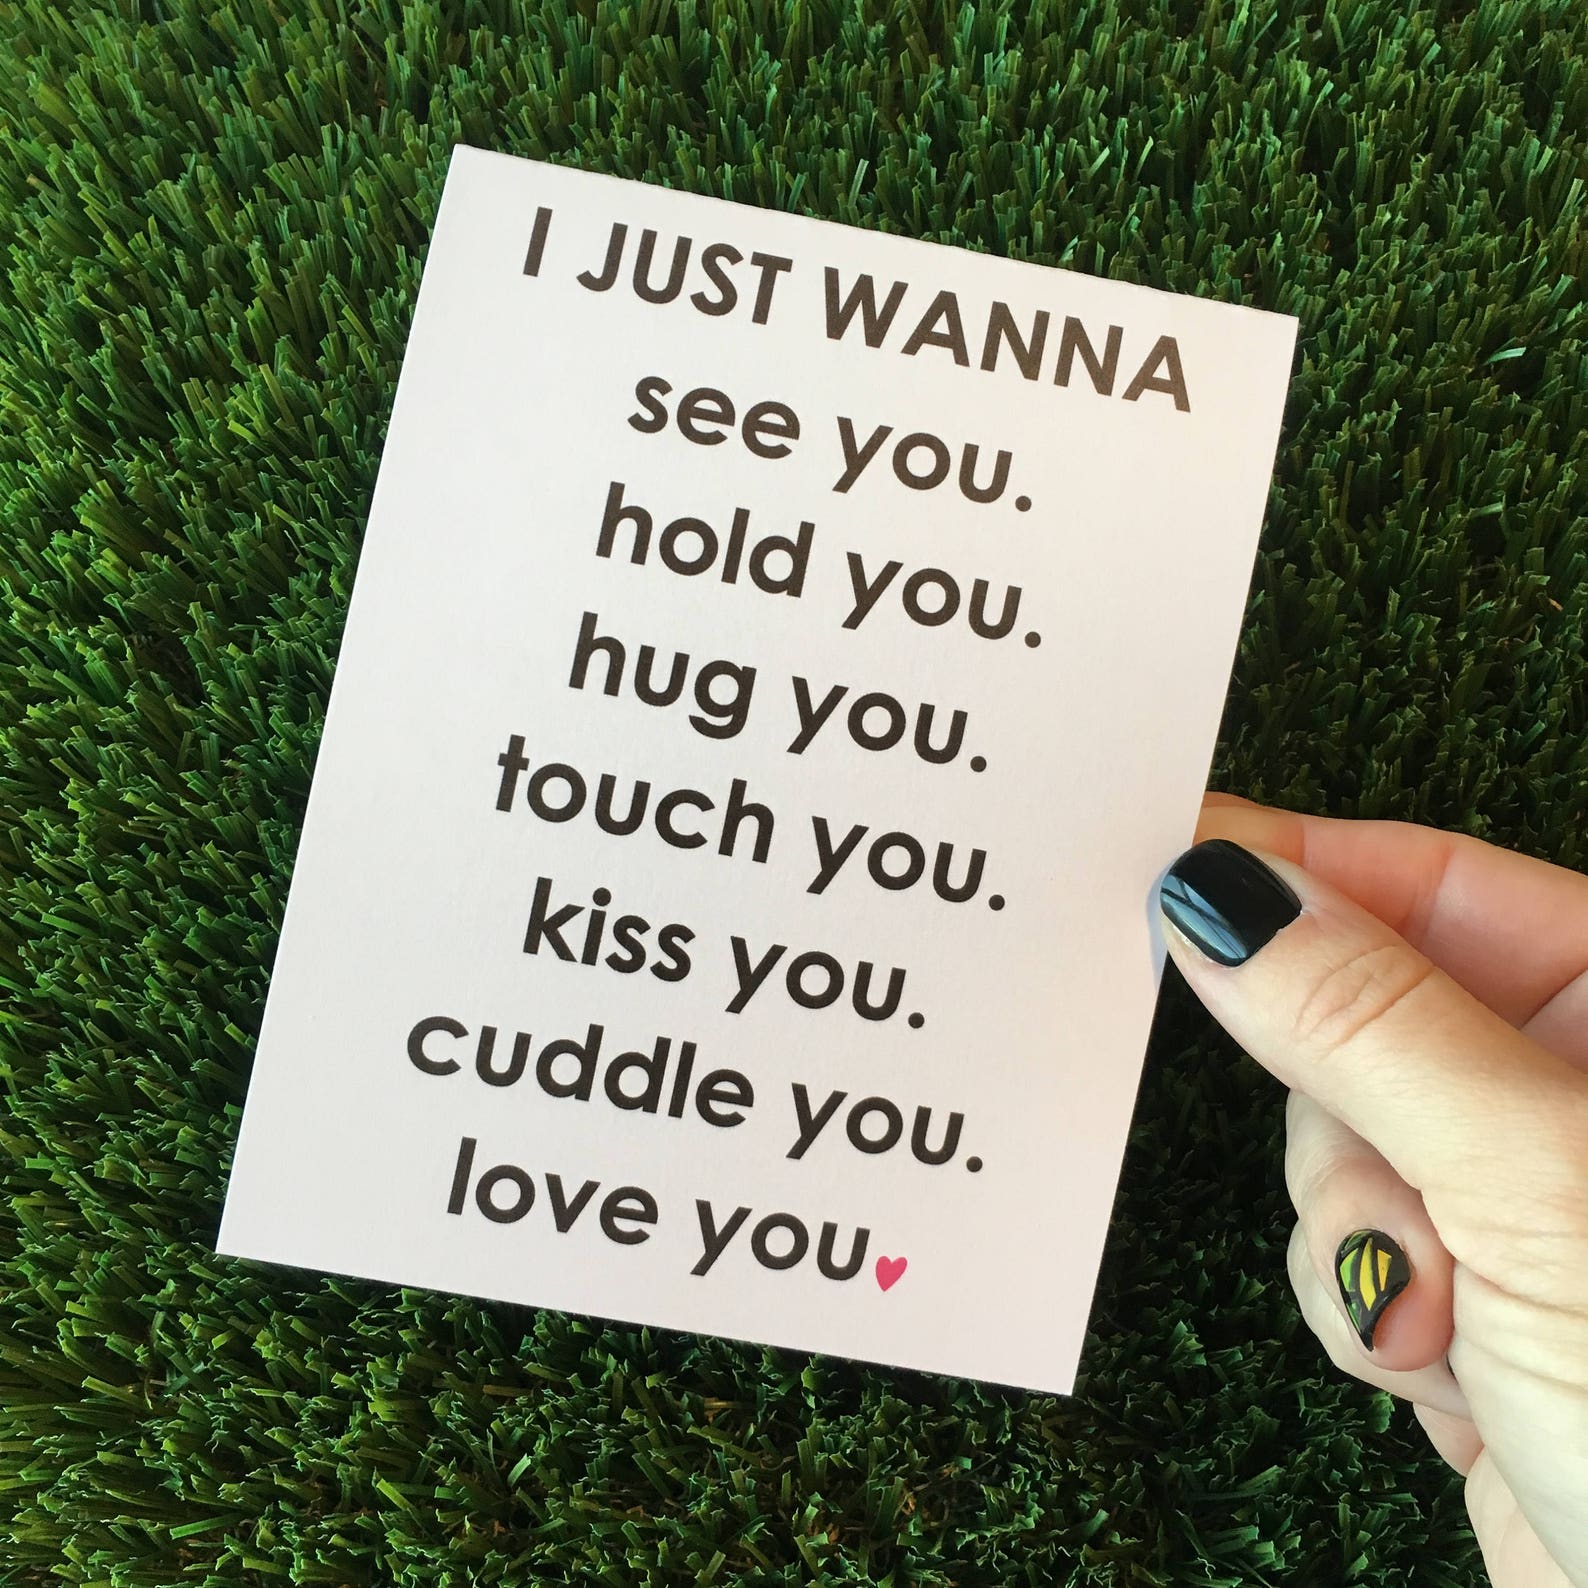 I JUST WANNA
see you.
hold you.
hug you.
touch you.
kiss you.
cuddle you.
love you